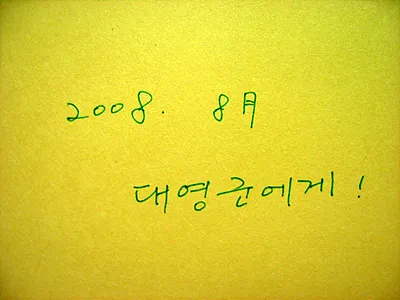 2008. 8月
대영군에게!